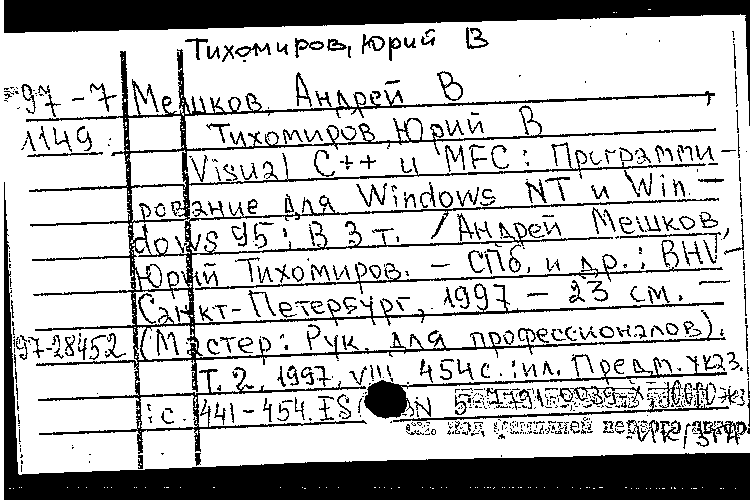 Тихомиров, Юрий В
97-7 Мешков, Андрей В,
1149. Тихомиров, Юрий В
Visual C++ и MFC: Программи-
рование для Windows NT и Win-
dows 95: В 3 т. / Андрей Мешков,
Юрий Тихомиров. - СПб. и др.: BHV-
Санкт-Петербург, 1997 - 23 см. -
97-28452 (Мастер: Рук. для профессионалов).
Т. 2, 1997, VIII, 454 с.: ил. Предм. указ.
: с. 441-454. ISBN 5 10000 экз
см. под фамилией первого автора